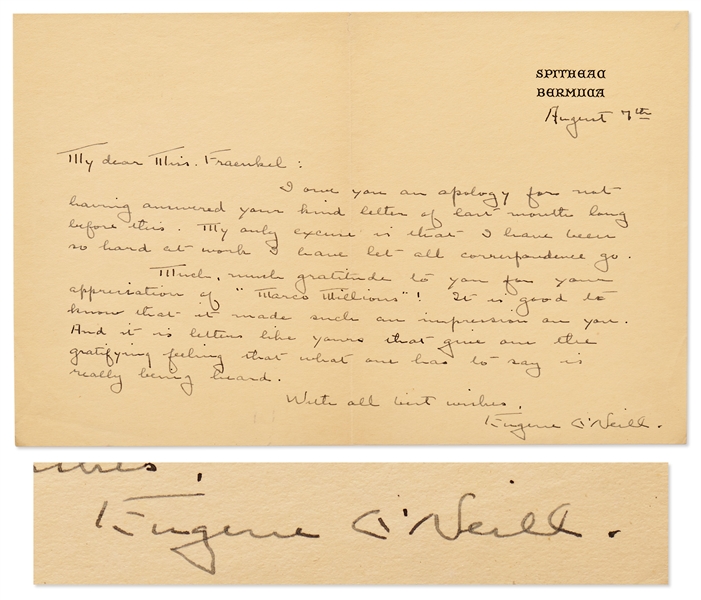 SPITHEAD
BERMUDA
August 7th
My dear Miss. Fraenkel:
I owe you an apology for not
having answered your kind letter of last month long
before this. My only excuse is that I have been
so hard at work I have let all correspondence go.
Much, much gratitude to you for your
appreciation of "Marco Millions"! It is good to
know that it made such an impression on you.
And it is letters like yours that give one the
gratifying feeling that what one has to say is
really being heard.
With all best wishes,
Eugene O'Neill.
Eugene O'Neill.